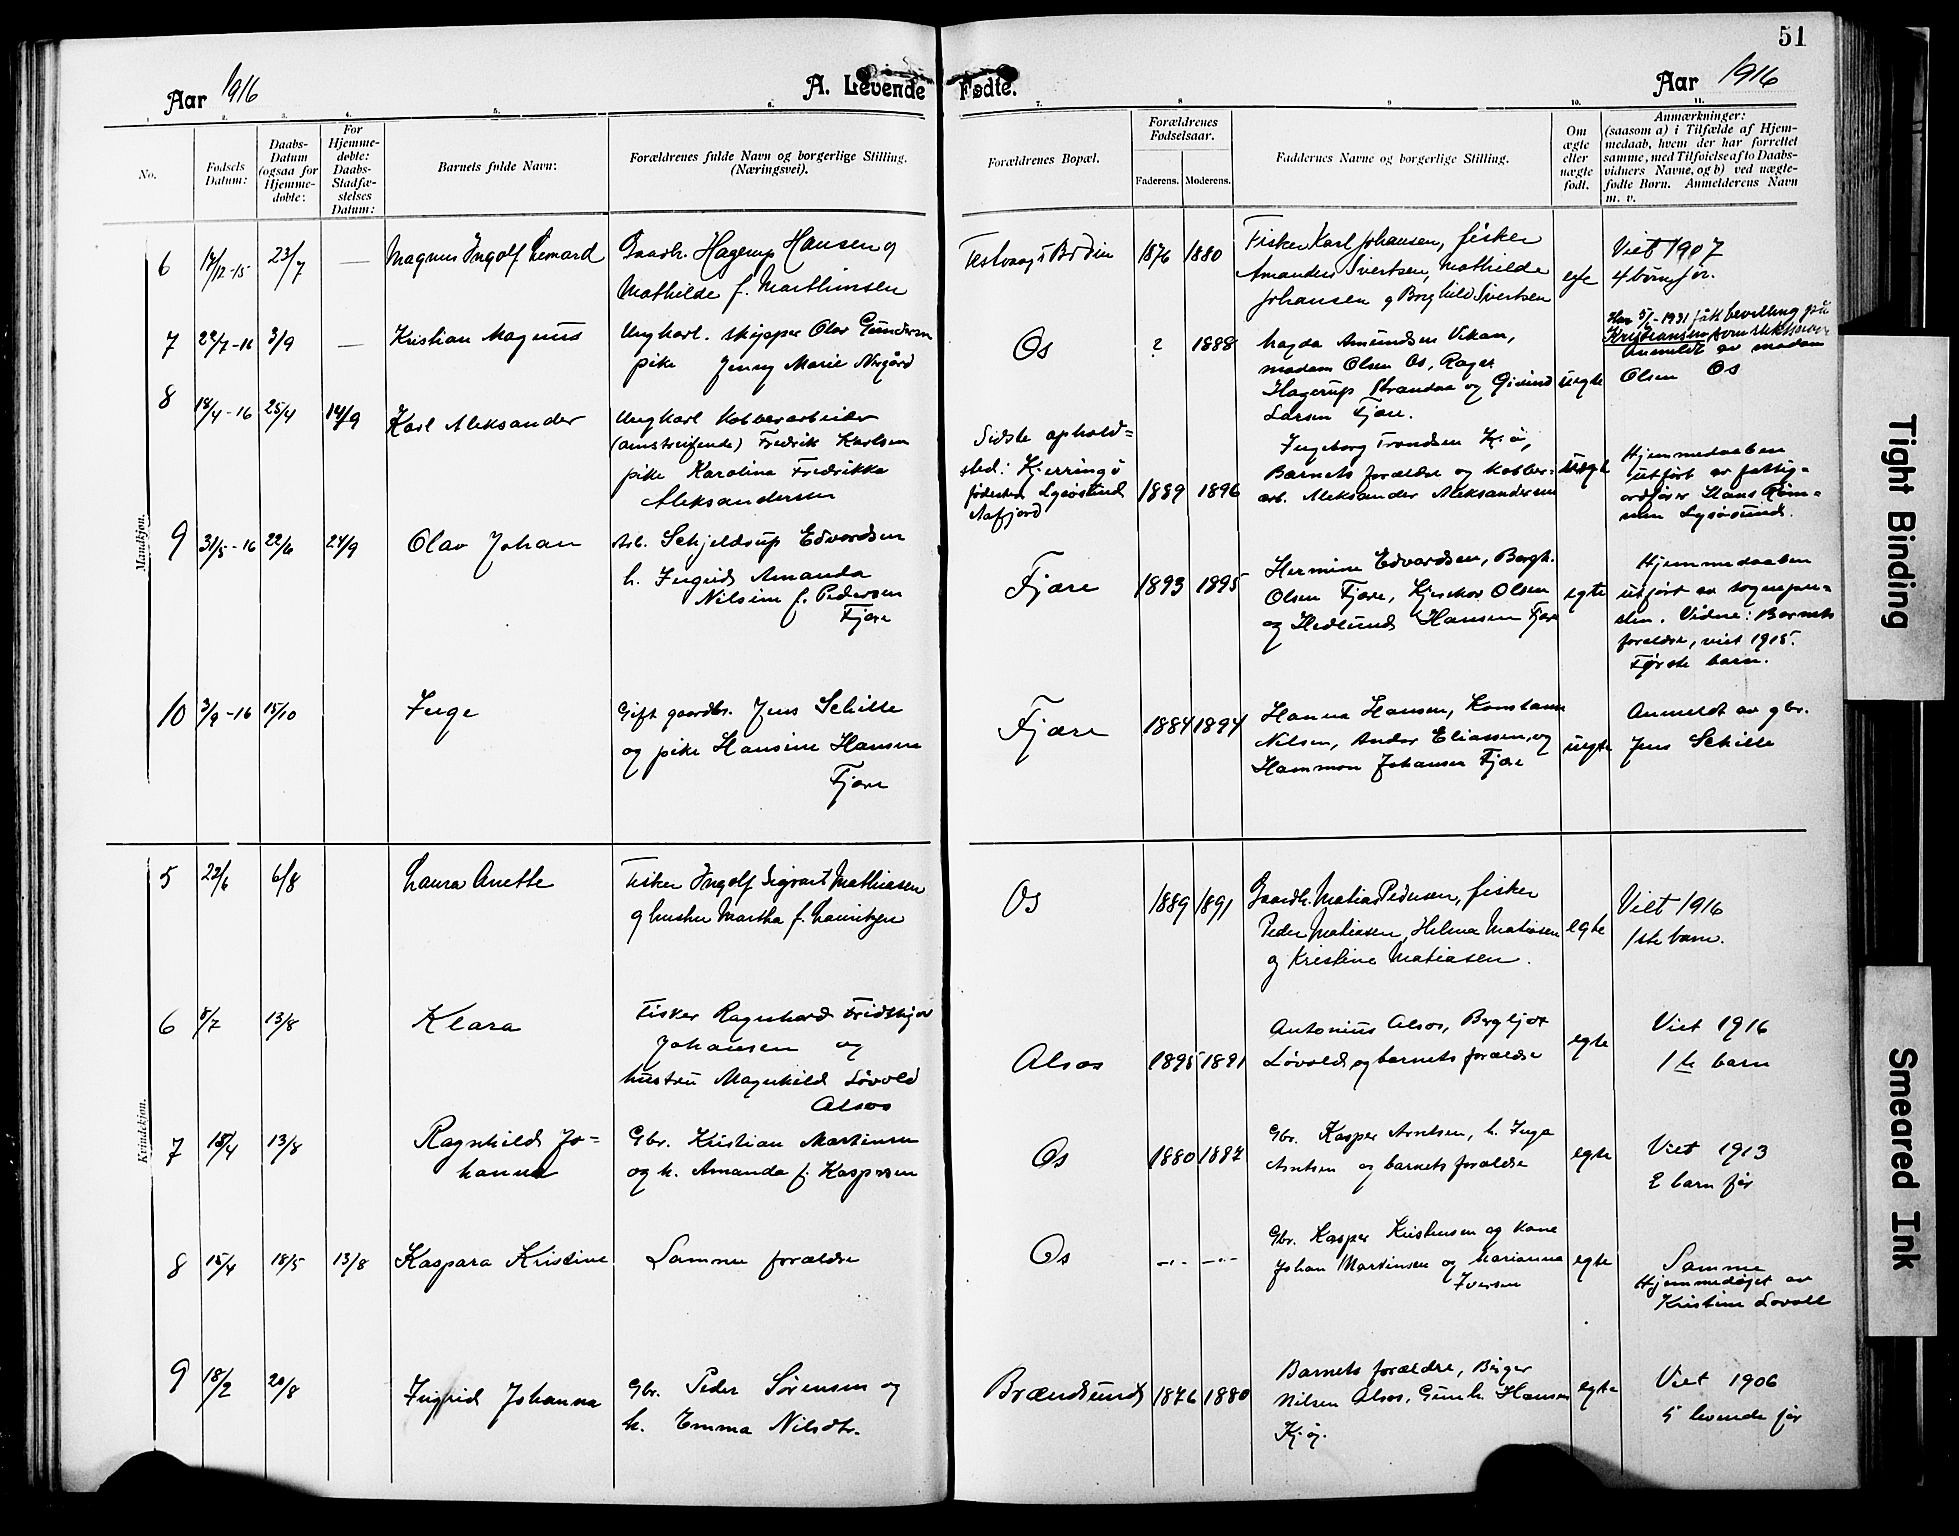 51
Aar 1916
A. Levende Fødte.
Aar 1916
1. 2. 3. 4. 5. 6. 7. 8 9 10. 11.
No.
Fødsels Datum:
Daabs-Datum (ogsaa for Hjemme-døbte:
For Hjemme-døbte: Daabs-Stadfæ-stelses Datum:
Barnets fulde Navn:
Forældrenes fulde Navn og borgerlige Stilling. (Næringsvei).
Forældrenes Bopæl.
Forældrenes Fødselsaar.
Faderens. Moderens.
Faddernes Navne og borgerlige Stilling.
Om ægte eller uægte født.
Anmærkninger:
(saasom a) i Tilfælde af Hjem-
medaab, hvem der har forrettet
samme, med Tilføielse af to Daabs-
vidners Navne, og b) ved uægte-
fødte Børn. Anmelderens Navn
m. v.
Mandkjøn.
6 17/12-15 23/7 — Magnus Ingolf
Gaardb. Hagerup Hansen og
Mathilde f. Marthinsen
1876 1880
Fisker Karl Johansen, fisker
Amandus Sivertsen, Mathilde
Johansen og Borghild Sivertsen
Viet 1907
4 børn før.
7 3/9 — Kristian Magnus
Ungkarl. skipper Olav
pike Jenny Marie
Os ? 1888
Magda Amundsen Vikan,
madam Olsen Os, Roger
Hagerup Strandaa og
Larsen Fjære.
uegte
1931 fik bevilling på
Kristiansen som slektsnavn
Anmeldt av madam
Olsen Os
8 18/4-16 25/4 14/9 Karl Aleksander
Ungkarl kobberarbeider
(omstreifende) Fredrik Karlsen
pike Karoline Fredrikke
Aleksandersen
Sidste ophold=
sted: Kjerringø
fødested Lysøsund
Aafjord
1889 1896
Ingeborg Trondsen Kjø,
Barnets forældre og kobber-
arb. Aleksander Aleksandersen
uægte
Hjemmedaaben
utført av fattig-
ordfører Hans
Lysøsund.
9 31/5-16 22/6 24/9 Olav Johan
Arb. Schjeldrup Edvardsen
h. Ingrid Amanda
Nilsine f. Pedersen
Fjære
Fjære 1893 1895
Hermine Edvardsen, Bergh.
Olsen Fjære, Olsen
og Hedlund Hansen Fjære
egte
Hjemmedaaben
utført av sognepre-
sten. Vidne: Barnets
forældre, viet 1915.
Første barn.
10 3/9-16 15/10 Inge
Gift gaardbr. Jens Schille
og pike Hansine Hansen
Fjære
Fjære 1884 1894
Hanna Hansen, Konstanse
Nilsen, Andor Eliassen, og
Hammon Johansen Fjære
uegte
Anmeldt av gbr.
Jens Schille
Kvindekjøn.
5 22/6 6/8 Laura Anette
Fisker Ingolf Sigvart Mathiasen
og hustru Martha f.
Os 1889 1891
Gaardb. Matias Pedersen, fisker
Peder Matiasen, Helena Matiasen
og Kristine Matiasen.
egte
Viet 1916
1ste barn.
6 8/7 13/8 Klara
Fisker Ragnhard Fridthjov
Johansen og
hustru Magnhild Løvold
Alsos
Alsos 1895 1891
Antonius Alsos, Bergljot
Løvold og barnets forældre
egte
Viet 1916
1te barn
7 15/4 13/8 Ragnhild Jo=
hanna
Gbr. Kristian Martinsen
og h. Amanda f. Kaspersen
Os 1880 1887
Gbr. Kasper Arntsen, h. Inga
Arntsen og barnets forældre
egte
Viet 1913
2 barn før
8 15/4 18/5 13/8 Kaspara Kristine
Samme forældre
Os -"- -"-
Gbr. Kasper Kristensen og kone
Johan Martinsen og Marianna
Iversen
egte
Samme
Hjemmedøpt av
Kristine Lovoll
9 18/2 20/8 Ingrid Johanna
Gbr. Peder Sørensen og
h. Emma Nilsdtr.
Brændsund 1876 1880
Barnets forældre, Birger
Nilsen Alsos, Gunh. Hansen
Kjø.
egte
Viet 1906
5 levende før
Tight Binding
Smeared Ink